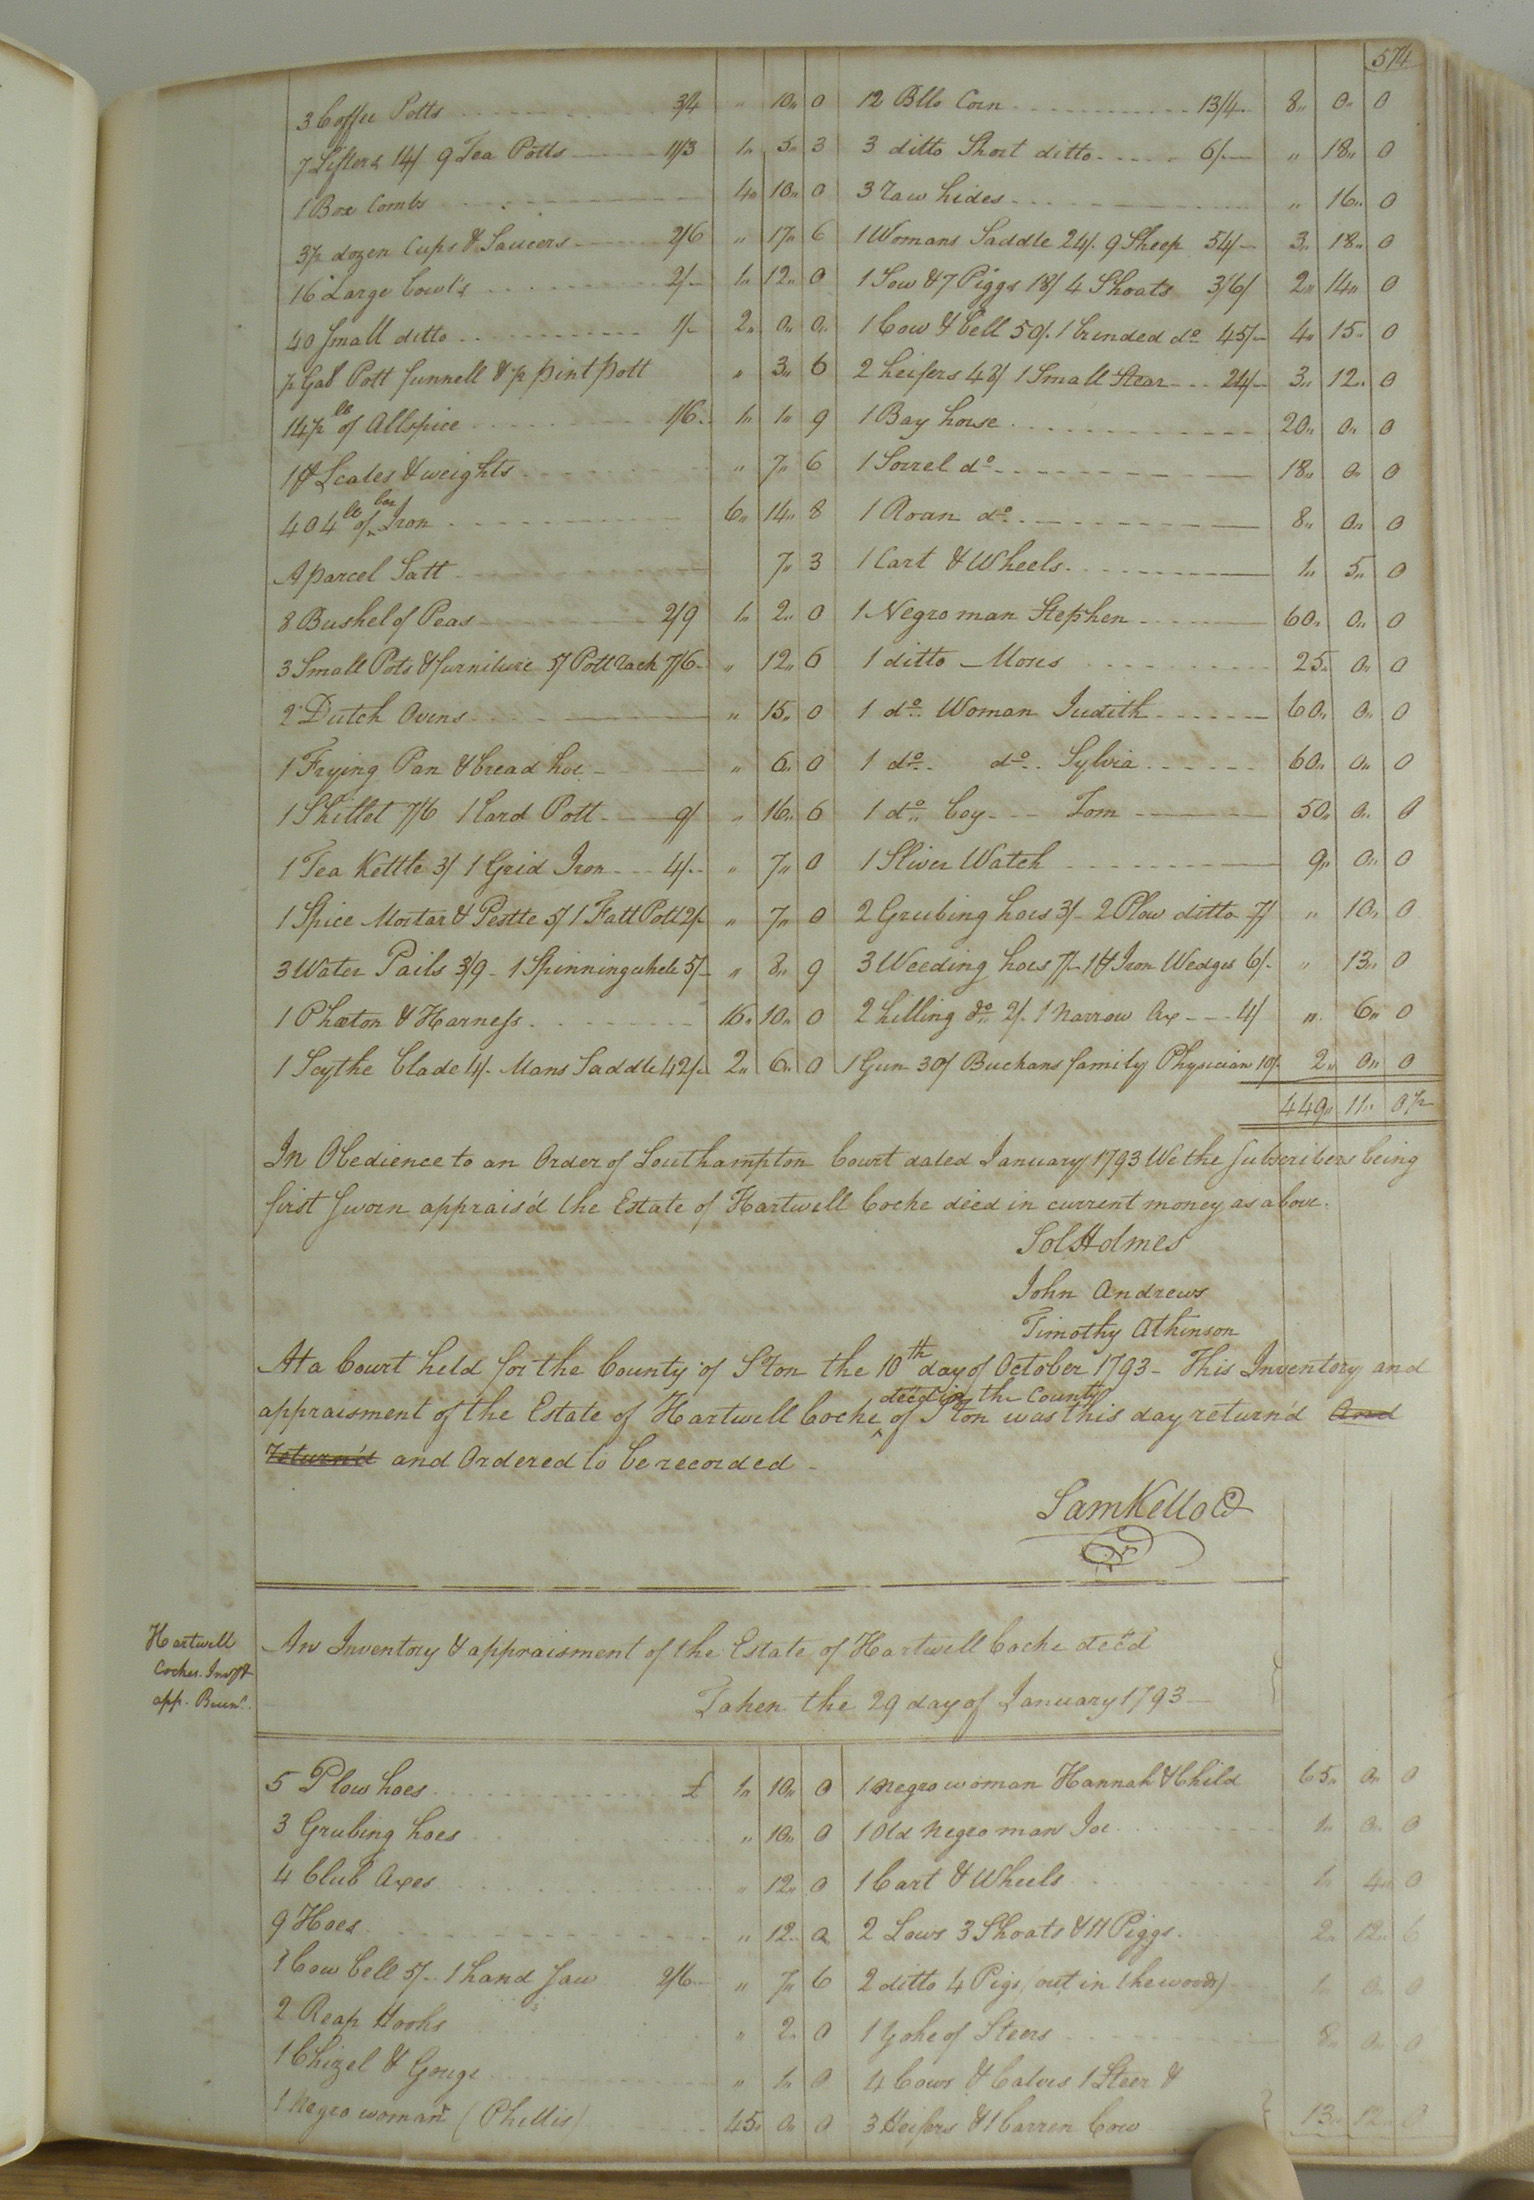 574
3 Coffee Potts 3/4 " 10" 0
7 Sifters 14/ 9 Tea Potts 11/3 1" 5" 3
1 Box Combs 4" 10" 0
3½ dozen Cups & Saucers 2/6 " 17" 6
16 Large bowl's 2/- 1" 12" 0
40 Small ditto 1/- 2" 0" 0"
½ Gal Pott funnell & ½ pint pott " 3" 6
14½ lb of Allspice 1/6 1" 1" 9
1 pr Scales & weights " 7" 6
404 lb of bar Iron 6" 14" 8
A parcel Salt 7" 3
8 Bushel of Peas 2/9 1" 2" 0
3 Small Pots & furniture 5/ Pott rack 7/6 " 12" 6
2 Dutch Ovens " 15" 0
1 Frying Pan & bread hoe " 6" 0
1 Skillet 7/6 1 lard Pott 9/ " 16" 6
1 Tea Kettle 3/ 1 Grid Iron 4/ " 7" 0
1 Spice Mortar & Pestle 5/ 1 Fatt Pott 2/ " 7" 0
3 Water Pails 3/9 1 Spinning whele 5/ " 8" 9
1 Phæton & Harness 16" 10" 0
1 Scythe blade 4/ Mans Saddle 42/ 2" 6" 0
12 Blls Corn 13/4 8" 0" 0
3 ditto Short ditto 6/ " 18" 0
3 raw hides " 16" 0
1 Womans Saddle 24/ 9 Sheep 54/ 3" 18" 0
1 Sow & 7 Piggs 18/ 4 Shoats 36/ 2" 14" 0
1 Cow & bell 50/ 1 brinded do 45/ 4" 15" 0
2 heifers 48/ 1 Small Stear 24/ 3" 12" 0
1 Bay horse 20" 0" 0
1 Sorrel do 18" 0" 0
1 Roan do 8" 0" 0
1 Cart & Wheels 1" 5" 0
1 Negro man Stephen 60" 0" 0
1 ditto Moses 25" 0" 0
1 do Woman Judith 60" 0" 0
1 do do Sylvia 60" 0" 0
1 do boy Tom 50" 0" 0
1 Sliver Watch 9" 0" 0
2 Grubing hoes 3/ 2 Plow ditto 7/ " 10" 0
3 Weeding hoes 7/ 1 pr Iron Wedges 6/ " 13" 0
2 hilling do 2/ 1 narrow Ax 4/ " 6" 0
1 Gun 30/ Buchans family Physician 10/ 2" 0" 0
449" 11" 0½
In Obedience to an Order of Southampton Court dated January 1793 We the Subscribers being
first Sworn apprais'd the Estate of Hartwell Cocke deċd in current money as above.
Sol Holmes
John Andrews
Timothy Atkinson
At a Court held for the County of S'ton the 10th day of October 1793 - This Inventory and
appraisment of the Estate of Hartwell Cocke dec'd in the County of S'ton was this day return'd And
return'd and Ordered to be recorded -
Sam Kello C
Hartwell
Cockes Invy &
app. Brunk.
An Inventory & appraisment of the Estate of Hartwell Cocke dec'd
Taken the 29 day of January 1793
5 Plow hoes £ 1" 10" 0
3 Grubing hoes " 10" 0
4 Club Axes " 12" 0
9 Hoes " 12" 0
1 Cow bell 5/ 1 hand Saw 2/6 " 7" 6
2 Reap Hooks " 2" 0
1 Chizel & Gouge " 1" 0
1 Negro woman (Phillis) 45" 0" 0
1 Negro woman Hannah & Child 65" 0" 0
1 Old negro man Joe 1" 0" 0
1 Cart & Wheels 1" 4" 0
2 Sows 3 Shoats & 11 Piggs 2" 12" 6
2 ditto 4 Pigs (out in the woods) 1" 0" 0
1 Yoke of Steers 8" 0" 0
4 Cows & Calves 1 Steer &
3 Heifers & 1 barren Cow 13" 12" 0